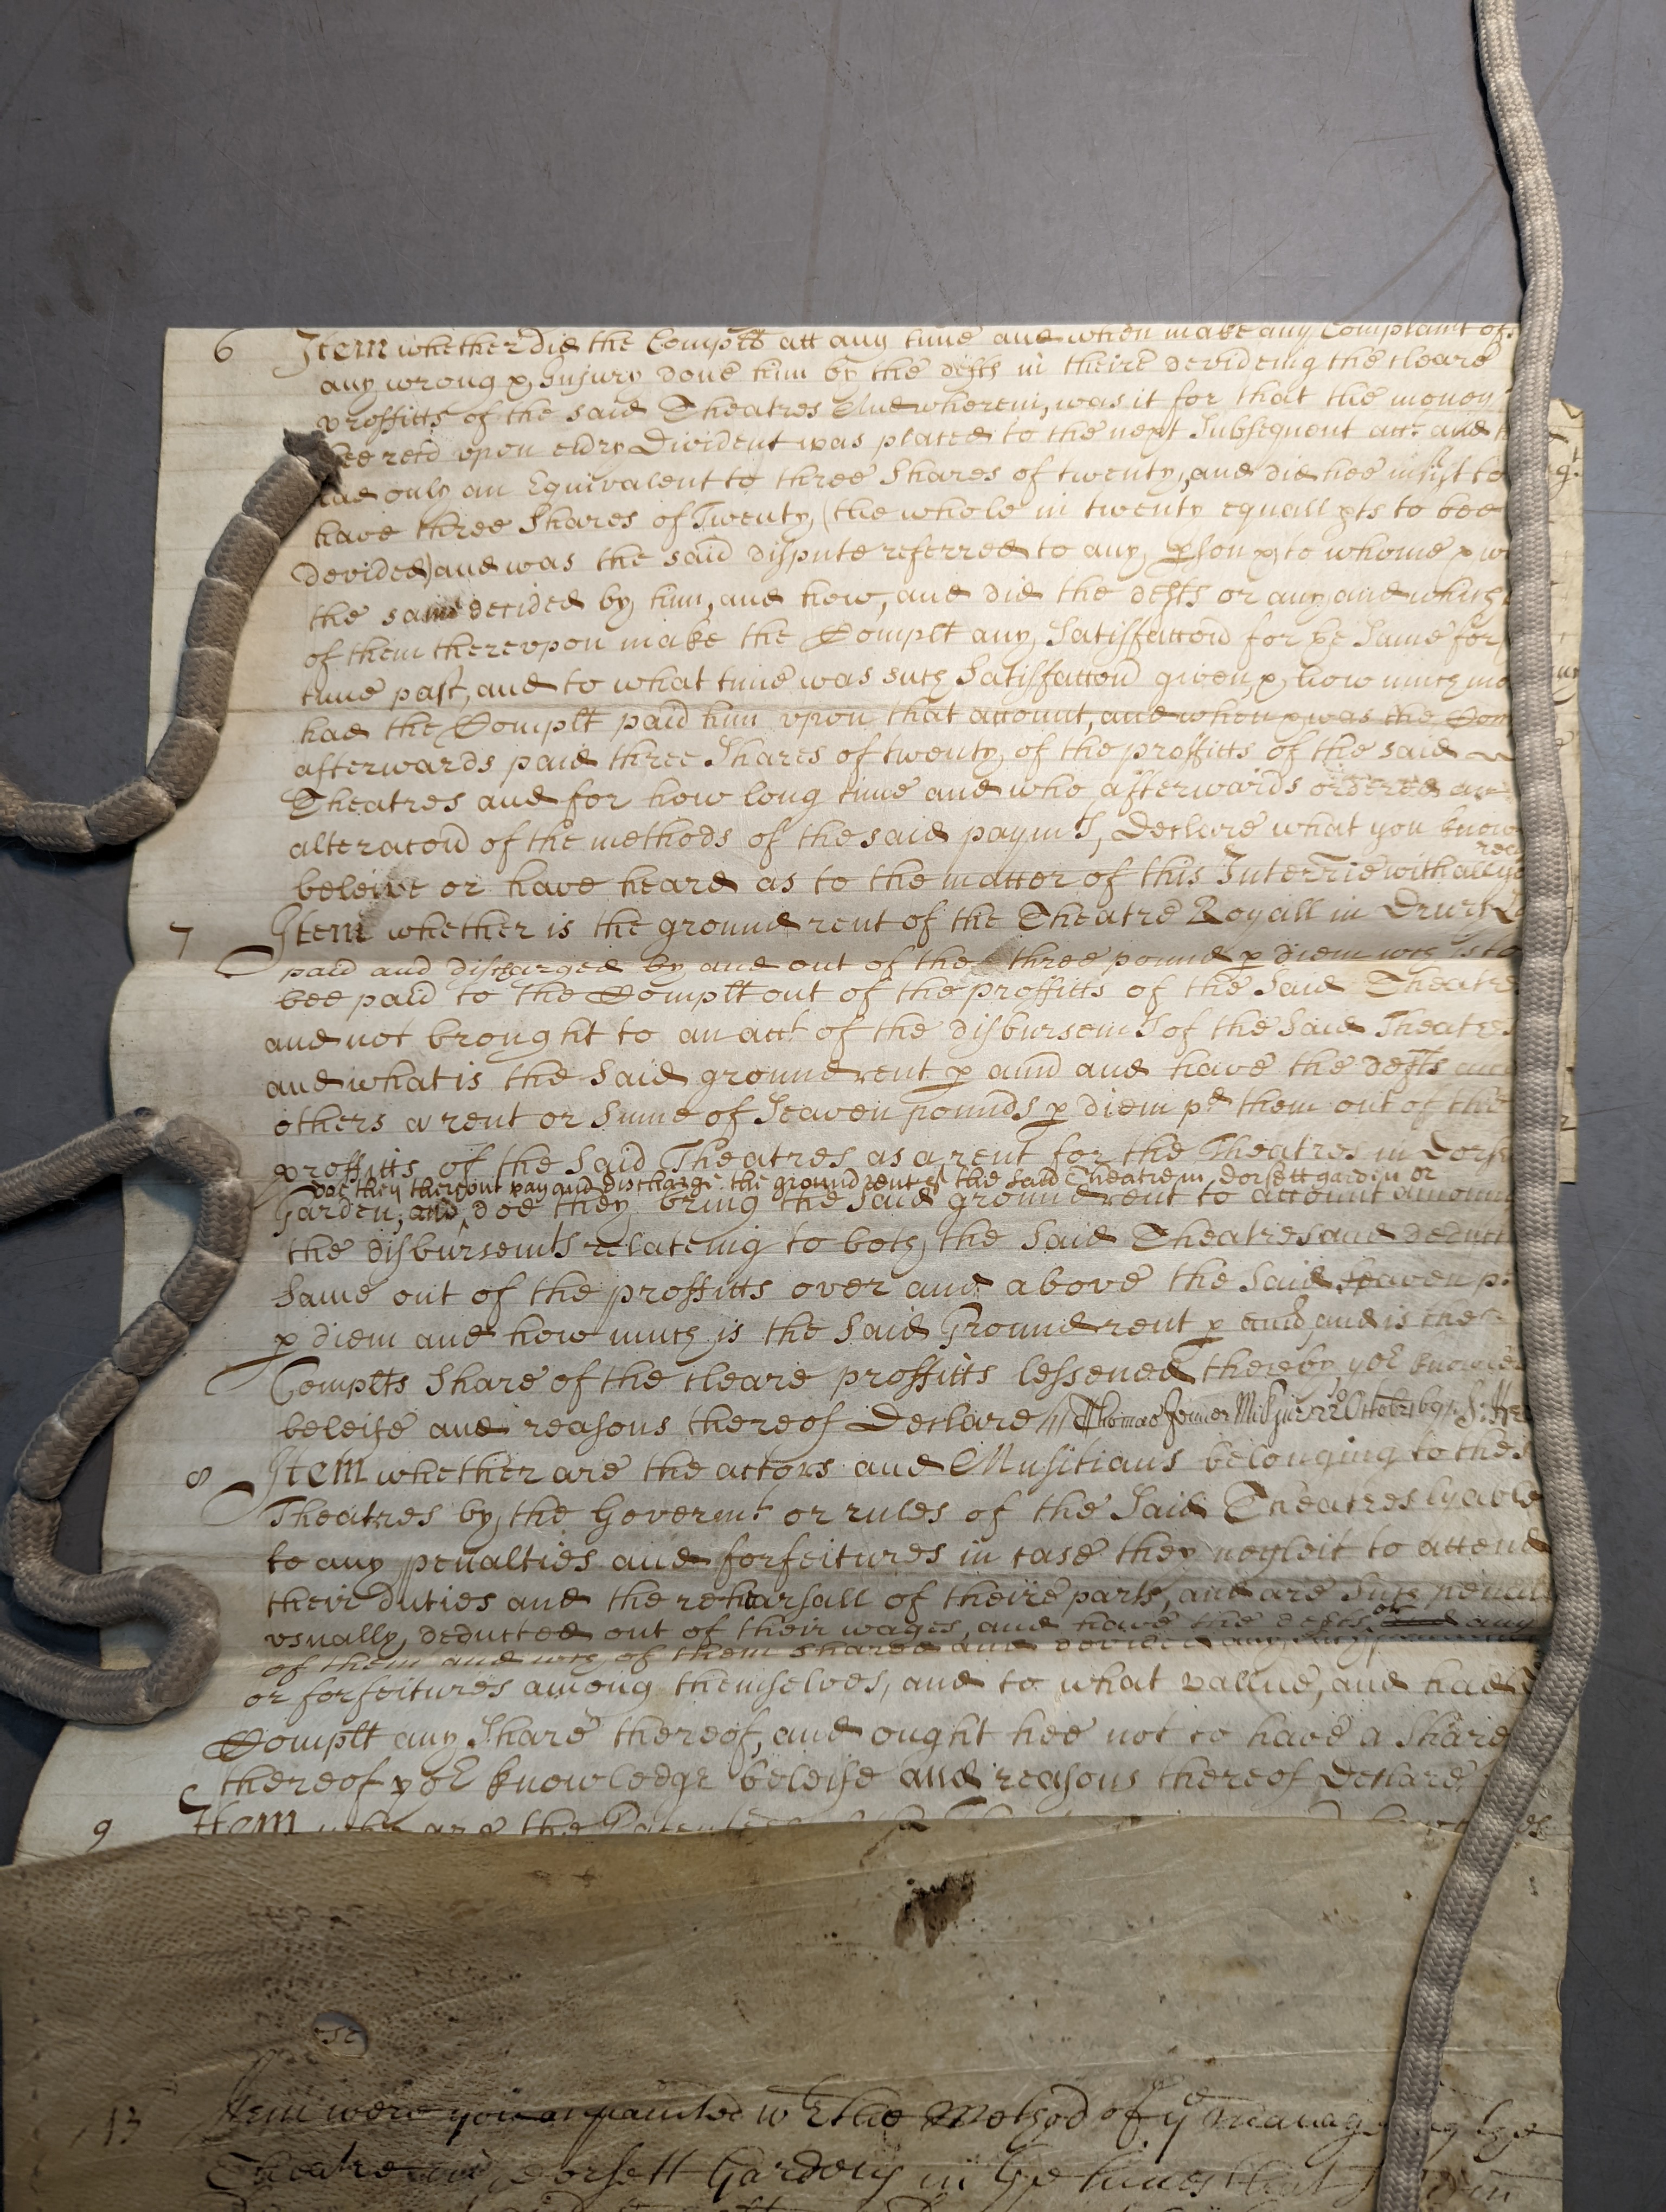 6 Item whether did the Complt att any time and when make any Complaint of
any wrong or Injury done him by the defts in theire devideing the cleare
proffitts of the said Theatres And wherein, was it for that the money
hee recd upon every Divident was placed to the next Subsequent acct and
had only an Equivalent to three Shares of twenty, and did hee insist to
have three Shares of Twenty, (the whole in twenty equall pts to bee
devided) and was the said dispute referred to any pson & to whome &
the same decided by him, and how, and did the defts or any and which
of them thereupon make the Complt any Satisfaccon for the Same for
time past, and to what time was such Satisfaccon given, & how much
had the Complt paid him upon that account, and when & was the
afterwards paid three Shares of twenty of the proffitts of the said
Theatres and for how long time and who afterwards ordered
alteracon of the methods of the said paymts, declare what you know
beleive or have heard as to the matter of this Interrie with all
7 Item whether is the ground rent of the Theatre Royall in Drury
paid and discharged by and out of the three pound p diem wch is to
bee paid to the Complt out of the proffitts of the Said Theatre
and not brought to an acct of the disbursemts of the Said Theatres
and what is the Said ground rent p ann and have the defts
others a rent or Sume of Seaven pounds p diem pd them out of the
proffitts of the Said Theatres as a rent for the Theatres in
doe they thereout pay and discharge the ground rent of the said Theatre in Dorsett garden or
Garden, and doe they bring the Said ground rent to account
the disbursemts relateing to both the Said Theatres and
Same out of the proffitts over and above the Said Seaven
p diem and how much is the Said Ground rent p ann and is the
Complts Share of the cleare proffitts lessened thereby yor
beleife and reasons thereof Declare // Thomas Jenner
8 Item whether are the actors and Musitians belonging to the
Theatres by the Govermt or rules of the Said Theatres lyable
to any penalties and forfeitures in case they neglect to attend
their duties and the rehearsall of theire parts, and are such
usually deducted out of their wages, and have the defts or any
of them and wch of them shared and devided any such
or forfeitures among themselves, and to what vallue, and had
Complt any Share thereof, and ought hee not to have a Share
thereof yor knowledge beleife and reasons thereof Declare
9 Item who are the
13 Item were you acquainted wth the Method of ye
Theatre in Dorsett Garden in the times that